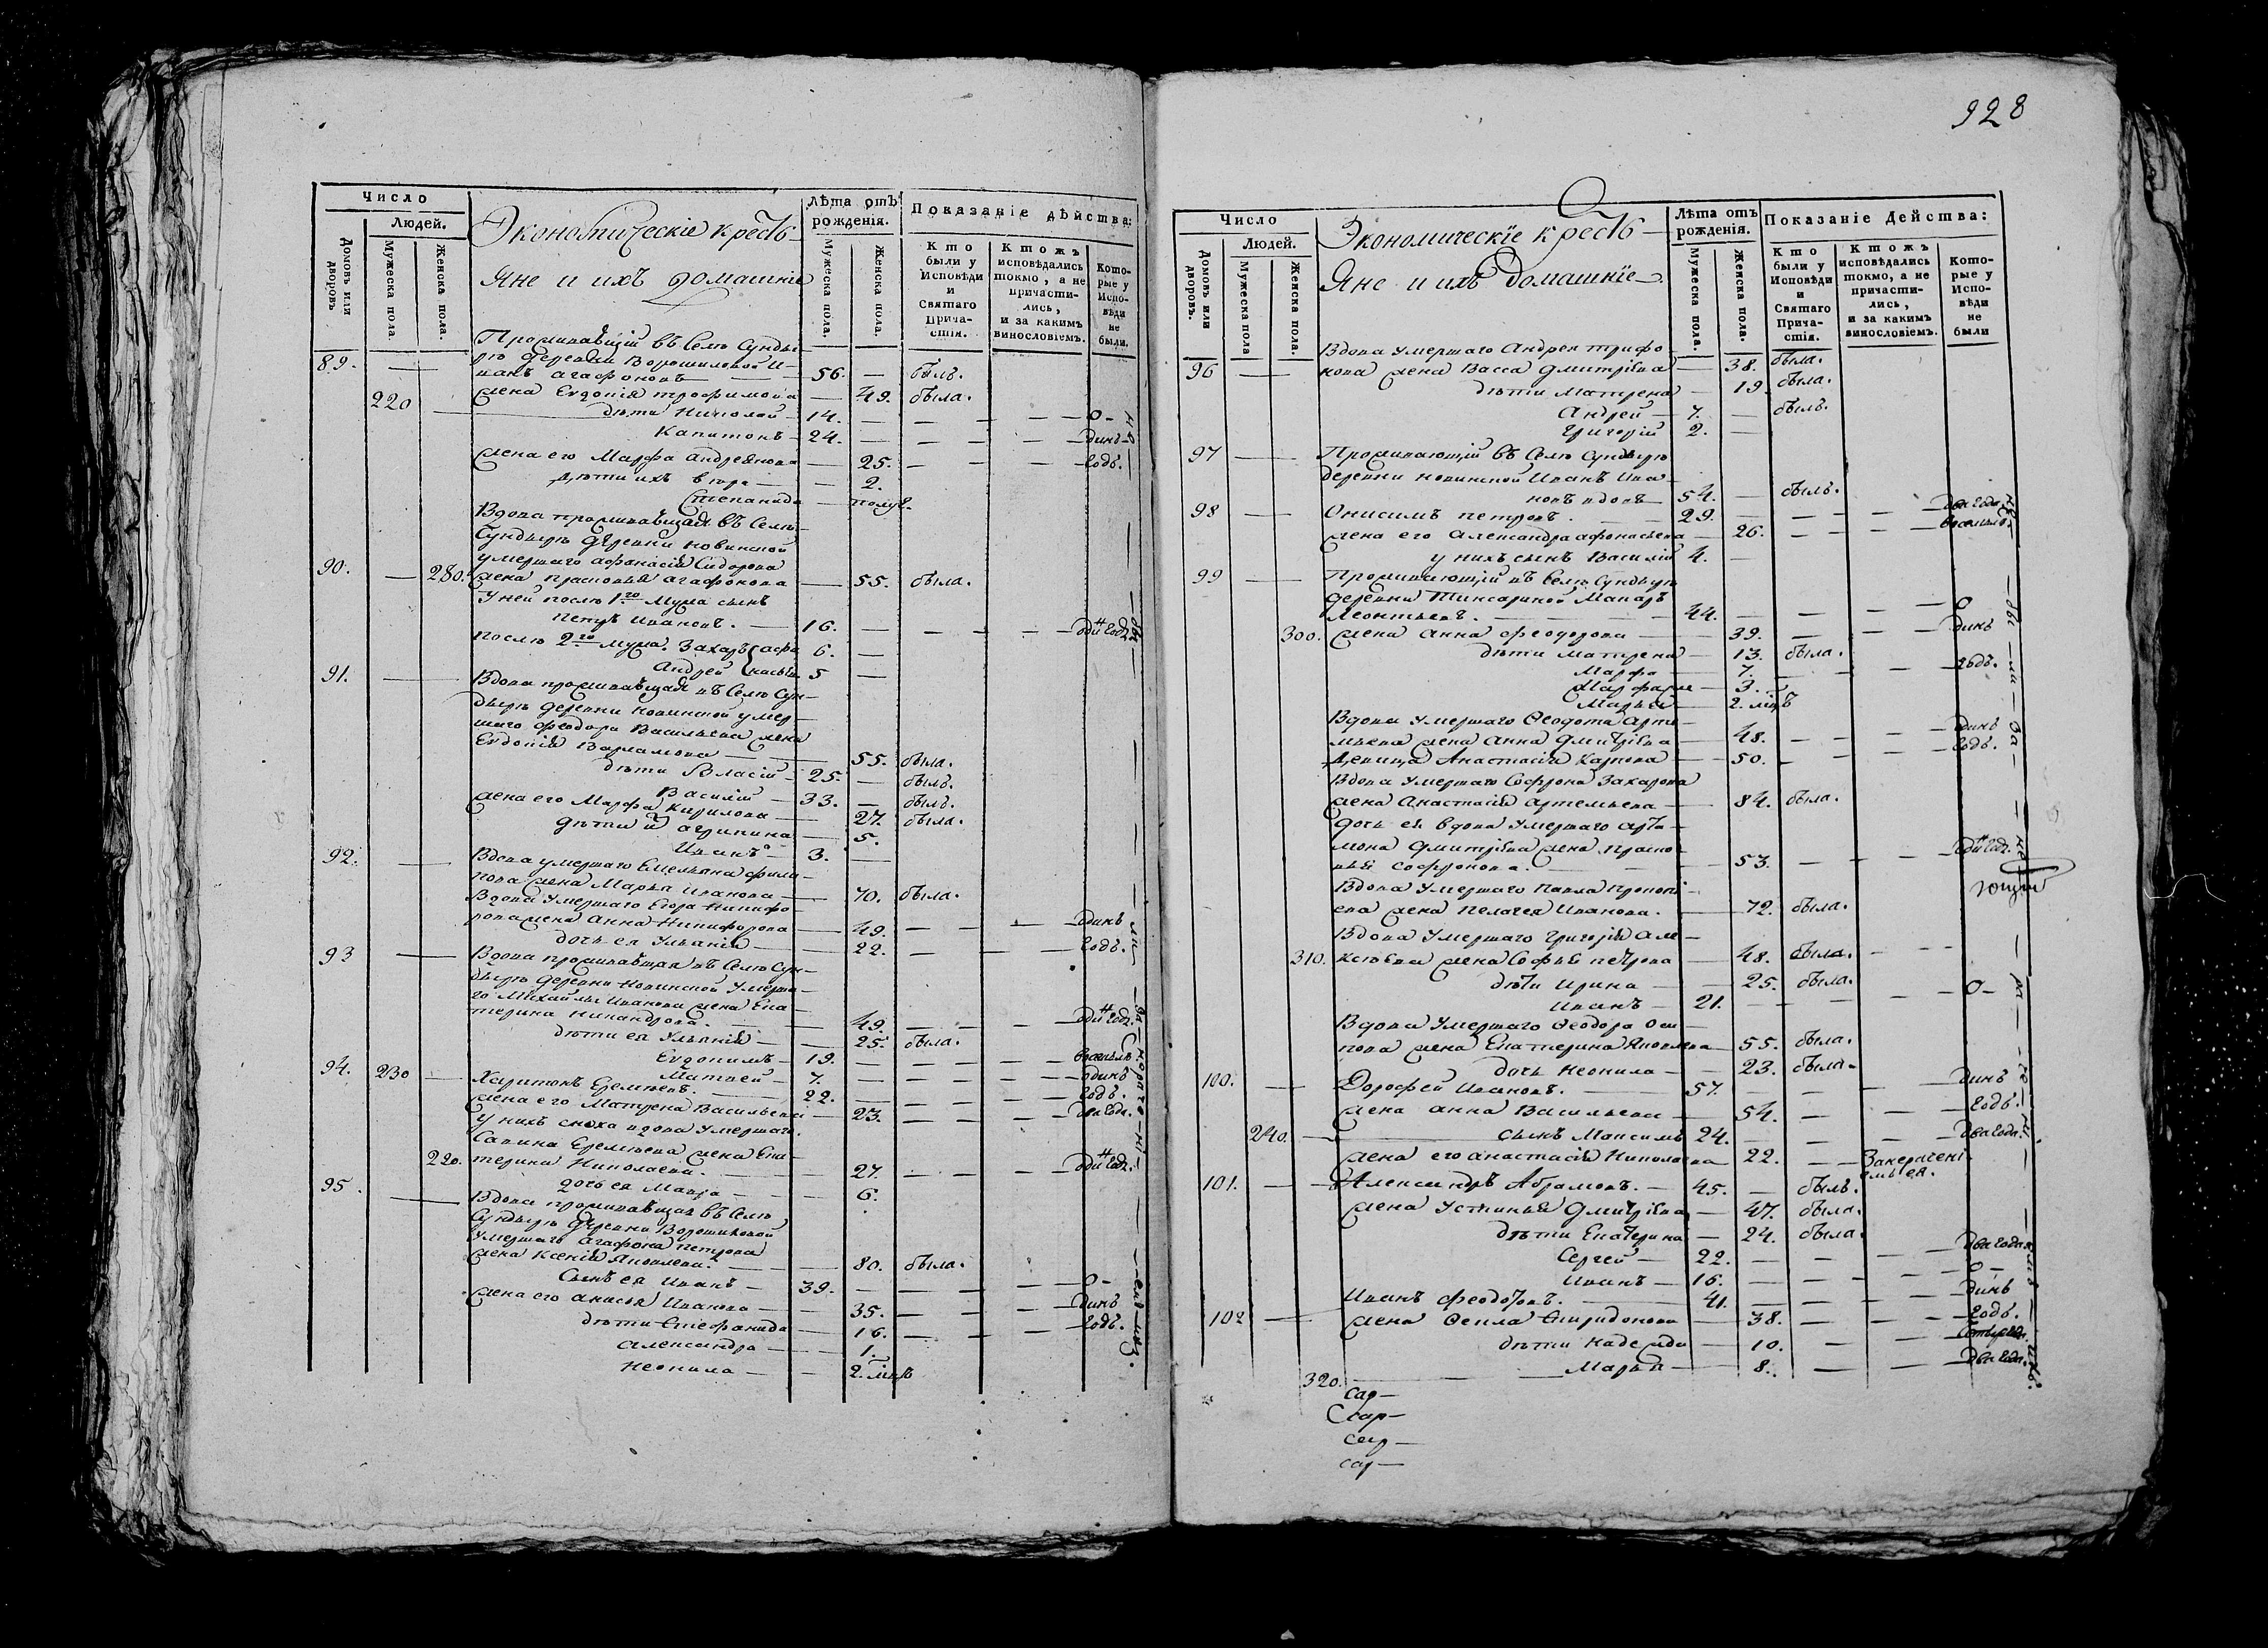 Число
Людей.
Домовъ или дворовъ.
Мужеска пола.
Женска пола.
Экономическіе кресть-
яне и ихъ домашніе
Лѣта отъ рожденія.
Мужеска пола.
Женска пола.
Показаніе дѣйства:
Кто были у Исповѣди и Святаго Прича-стія.
Ктожъ исповѣдались токмо, а не причасти-лись, и за какимъ винословіемъ.
Кото-рые у Испо-вѣди не были.
Проживающій въ Селѣ Сунды-
рѣ деревни Ворошиловой И-
89. — ванъ агафоновъ — 56. — былъ.
жена Евдокія трофимова — 49. была.
220 — дѣти Николай — 14. — — — О-
Капитонъ — 24. — — — — динъ
жена его Марфа андреянова — 25. — — — Годъ.
дѣти ихъ — 2.
Степанида — полуг.
Вдова проживающая въ Селѣ
Сундырѣ деревни новинской
умершаго афанасія Сидорова
90. — 280. жена прасковья агафонова — 55. была.
У ней послѣ 1го мужа сынъ
петръ Ивановъ. — 16. — — — — оди Годъ.
послѣ 2го мужа. Захаръ 6. —
Андрей 5 —
91. — Вдова проживающая въ Селѣ Сун-
дырѣ деревни новинской умер-
шаго феодора Васильева жена
Евдокія Варламова — 55. была.
дѣти Власій — 25. — былъ.
Василій — 33. — былъ.
жена его Марфа Кирилова — 27. была.
дѣти агрипина — 5.
Иванъ — 3. —
92. — Вдова умершаго Емельяна фили-
пова жена Марья Иванова — 70. была.
Вдова умершаго Егора Никифо-
рова жена Анна Никифорова — 49. — — — Одинъ
дочь ея Ульянія — 22. — — — Годъ.
93 — Вдова проживающая въ Селѣ Сун-
дырѣ деревни новинской умерша-
го Михайлы Иванова жена Ека-
терина Никандрова. — 49. — — — оди Годъ.
дѣти ея Ульянія — 25. была.
Евдокимъ — 19. — — — —
230 Матвей — 7. — — — — одинъ
94. — Харитонъ Еремѣевъ. — 22. — — — — Годъ.
жена его Матрена Васильева — 23. — — — два Года.
у нихъ сноха вдова умершаго
Савина Еремѣева жена Ека-
220. терина Николаева. — 27. — — — оди Годъ.
дочь ея Мавра — 6.
95. — Вдова проживающая въ Селѣ
Сундырѣ деревни Ворошиловой
умершаго Агафона петрова
жена Ксенія Яковлева. — 80. была.
Сынъ ея Иванъ — 39. — — — О-
жена его анисья Иванова — 35. — — — динъ
дѣти Стефанида — 16. — — — Годъ.
александра — 1.
неонила — 2. міцъ
928
Число
Людей.
Домовъ или дворовъ.
Мужеска пола
Женска пола.
Экономическіе кресть-
яне и ихъ домашніе
Лѣта отъ рожденія.
Мужеска пола.
Женска пола.
Показаніе Действа:
Кто были у Исповѣди и Святаго Прича-стія.
Ктожъ исповѣдались токмо, а не причасти-лись, и за какимъ винословіемъ.
Кото-рые у Испо-вѣди не были
Вдова умершаго Андрея трифо-
96 — нова жена Васса дмитріева — 38. была.
дѣти Матрена — 19. была.
Андрей — 7. — былъ.
Григорій 2. —
97 — Проживающій въ Селѣ Сундырѣ
деревни новинской Иванъ Ива-
новъ вдовъ — 54. — былъ.
98 — Онисимъ петровъ. — 29. — — — два Года
жена его александра афонасьева — 26. — — —
у нихъ сынъ Василій 4. —
99 — Проживающій въ Селѣ Сундырѣ
деревни Макаръ
Леонтьевъ. — 44. — — — О
300. жена анна феодорова — 39. — — динъ
дѣти Матрена — 13. была.
Марфа — 7. — — Годъ.
Марфа же — 3.
Марья — 2. міцъ
Вдова умершаго Феодота арте-
мьева жена анна дмитріева — 48. — — — динъ
Девица Анастасія Карпова — 50. — — — Годъ.
Вдова умершаго Софрона Захарова
жена Анастасія артемьева — 84. была.
дочь ея вдова умершаго арта-
мона дмитріева жена праско-
вья софронова. — 53. — — — оди Годъ.
Вдова умершаго Павла прокопі-
ева жена пелагея Иванова. — 72. была.
Вдова умершаго Григорія але-
310. ксѣева жена Софья петрова — 48. была. —
дѣти Ирина — 25. была.
Иванъ — 21. — — — О-
Вдова умершаго Феодора Оси-
пова жена Екатерина Яковлева — 55. была.
дочь неонила — 23. была
100. — Дорофей Ивановъ. — 57. — — — динъ
жена анна Васильева — 54. — — — Годъ.
240. — сынъ Максимъ 24. — — — два Года.
жена его анастасія Николаева — 22. — —
101. — Александръ Абрамовъ. — 45. — былъ.
жена Устинья дмитріева — 47. была.
дѣти Екатерина — 24. была.
Сергей — 22. — — — два Года
Иванъ — 16. — — — О-
Иванъ феодоровъ. — 41. — — — динъ
102 — жена Фекла Спиридонова — 38. — — — Годъ.
дѣти надежда — 10. — —
320. — Марья — 8. — — — два Года.
сар-
Сар-
сар-
сар-